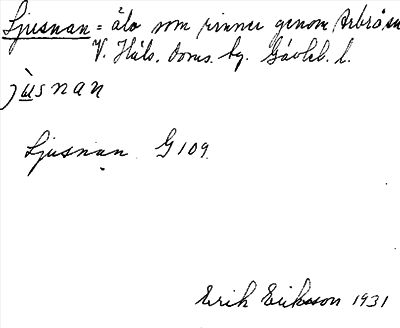 Ljusnan = älv som rinner genom Arbrå, sn
V. Häls. doms. by. Gävleb. l.
jùsnan
Ljusnan G 109.
Erik Eriksson 1931